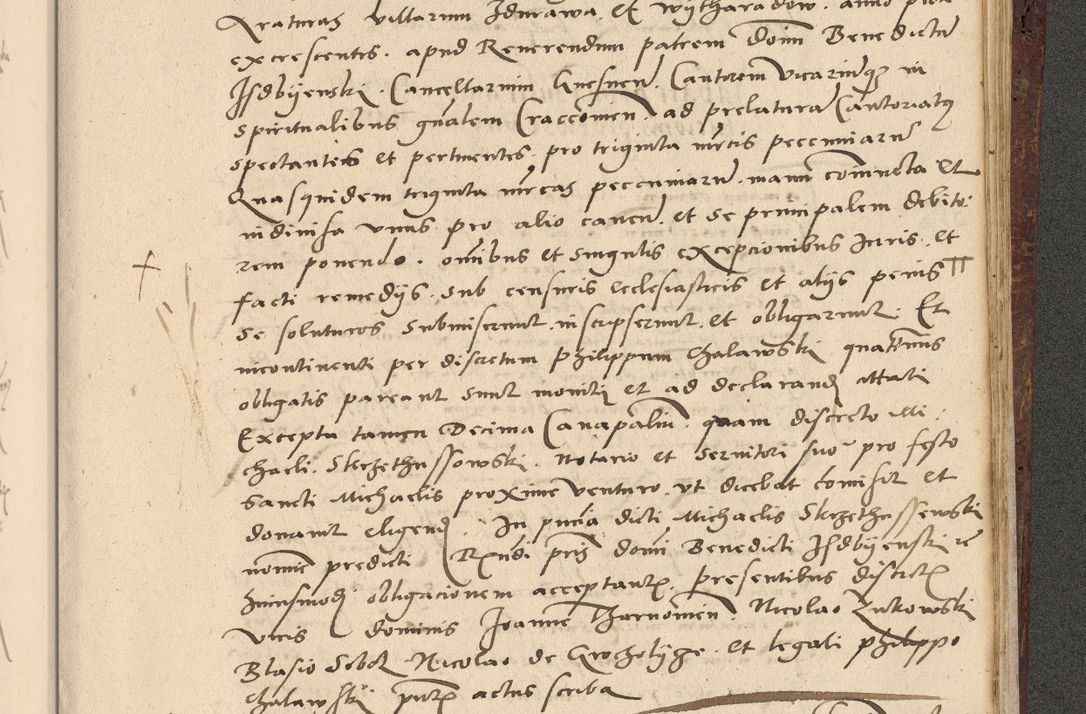 villarum Zdrawa et
excrescentis apud Reverendum patrem Dominum Benedictum
Isdbijenski Cancellarium Gnesnen Cantorem vicariumque in
spiritualibus gnalem Cracovien ad prelatura Cantoriatus
spectantes et pertinentes pro triginta mrcis pecuniarum
Quasquidem triginta mrcas pecuniarum manu coniuncta et
indivisa unus pro alio caven et se principalem debito
rem ponendo omnibus et singulis exceptionibus Iuris et
facti remedijs sub censuris ecclesiasticis et alijs penis
se soluturos submiserunt inscripserunt et obligarunt Et
incontinenti per discretum Philippum Chalawski quatenus
obligatis pareant sunt moniti et ad declarand attati
Excepta tamen Decima Canapalium quam discreto Mi
chaeli Skrzethussowski Notario et servitori suo pro festo
Sancti Michaelis proxime venturo ut dicebat comisit et
donavit eligend In pncia dicti Michaelis Skrzethussewski
nomine predicti Rendi pris domini Benedicti Isdbijenski
huiusmodi obligacionem acceptante Presentibus discretis
viris dominis Joanne Nicolao Zukowski
Blasio Nicolao de et legati philippo
Chalawski actus scriba